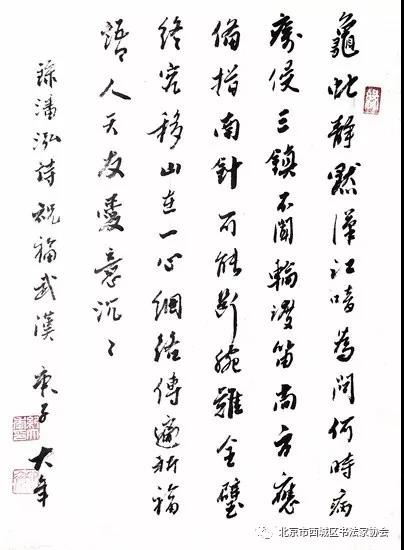 龜蛇靜默漢江喑為問何時病
癘侵三鎮不聞輪渡笛尚方應
備指南針而能斷腕難全璧
終究移山在一心網絡傳遍祈福
語人天友愛意沉〻
録潘泓詩祝福武漢 庚子 大年
北京市西城区书法家协会